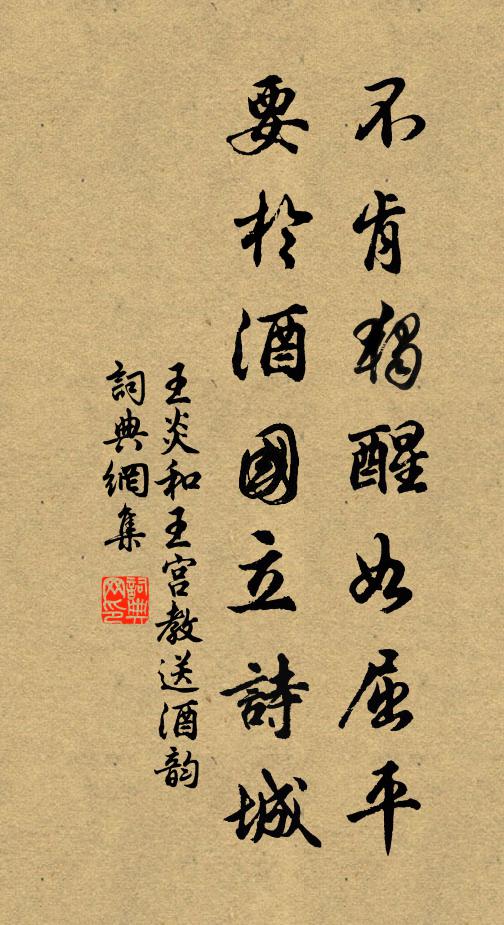 不肯獨醒如屈平
要於酒國立詩城
王炎和王宫教送酒韵
詞典網集
詞典網印